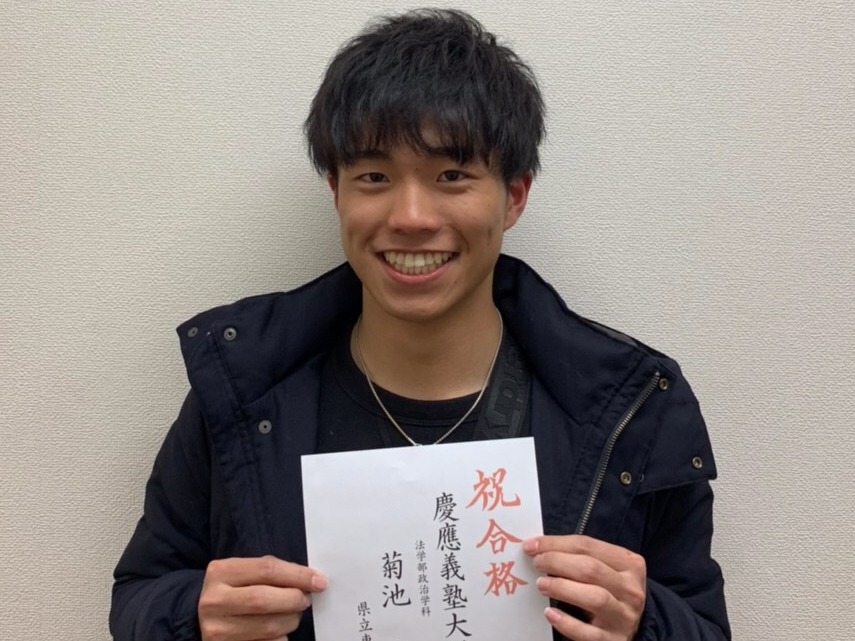 祝合格
慶應義塾大
法学部政治学科
菊池
県立